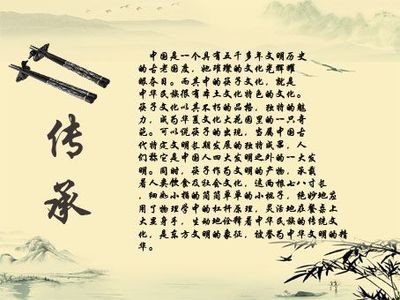 传承
中国是一个具有五千多年文明历史
的古老国度，把璀璨的文化光辉耀
眼夺目。而其中的筷子文化，就是
中华民族很有本土文化特色的文化。
筷子文化以其不朽的品格，独特的魅
力，成为华夏文化大花园里的一只奇
葩。可以说筷子的出现，当属中国古
代特定文明长期发展的独特成果，人
们称它是中国人四大发明之外的一大发
明。同时，筷子作为文明的产物，承载
着人类饮食及社会文化，这两根七八寸长
，细如小指的简简单单的小棍子，绝妙地应
用了物理学中的杠杆原理，灵活地在餐桌上
大显身手，生动地诠释着中华民族的传统文
化，是东方文明的象征，被誉为中华文明的精
华。